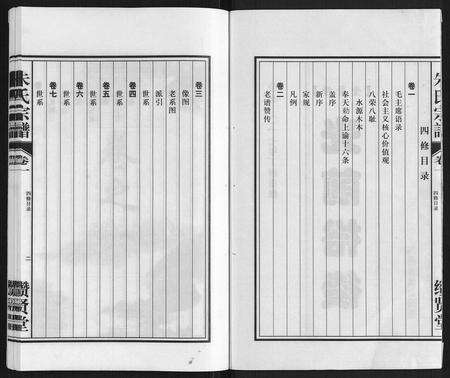 朱氏宗譜
卷一
四修目录
缵贤堂
四修目录
卷一
毛主席语录
社会主义核心价值观
八荣八耻
水源木本
奉天勅命上谕十六条
新序
盖序
家规
凡例
卷二
老谱赞传
卷三
像图
老系图
派引
卷四
世系
卷五
世系
卷六
世系
卷七
世系
朱氏宗譜
卷一
四修目录
二
缵贤堂